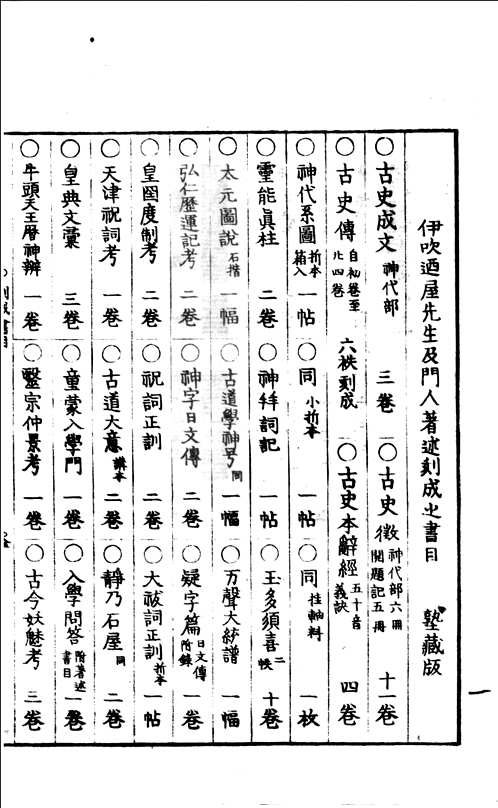 伊吹廼屋先生及門人著述刻成之書目 塾藏版
〇古史成文 神代部 三卷 〇古史徵 神代部六冊 開題記五冊 十一卷
〇古史傳 自初卷至廿四卷 六帙刻成 〇古史本辭經 五十音義訣 四卷
〇神代系圖 折本箱入 一帖 〇同 小折本 一帖 〇同 挂軸料 一枚
〇靈能眞柱 二卷 〇神拜詞記 一帖 〇玉多須喜 二帙 十卷
〇太元圖說 石摺 一幅 〇古道學神号 同 一幅 〇万聲大統譜 一幅
〇弘仁歷運記考 二卷 〇神字日文傳 二卷 〇疑字篇 日文傳附錄 一卷
〇皇國度制考 二卷 〇祝詞正訓 二卷 〇大祓詞正訓 折本 一帖
〇天津祝詞考 一卷 〇古道大意 講本 二卷 〇靜乃石屋 同 二卷
〇皇典文彙 三卷 〇童蒙入學門 一卷 〇入學問答 附著述書目 一卷
〇牛頭天王曆神辨 一卷 〇醫宗仲景考 一卷 〇古今妖魅考 三卷
一